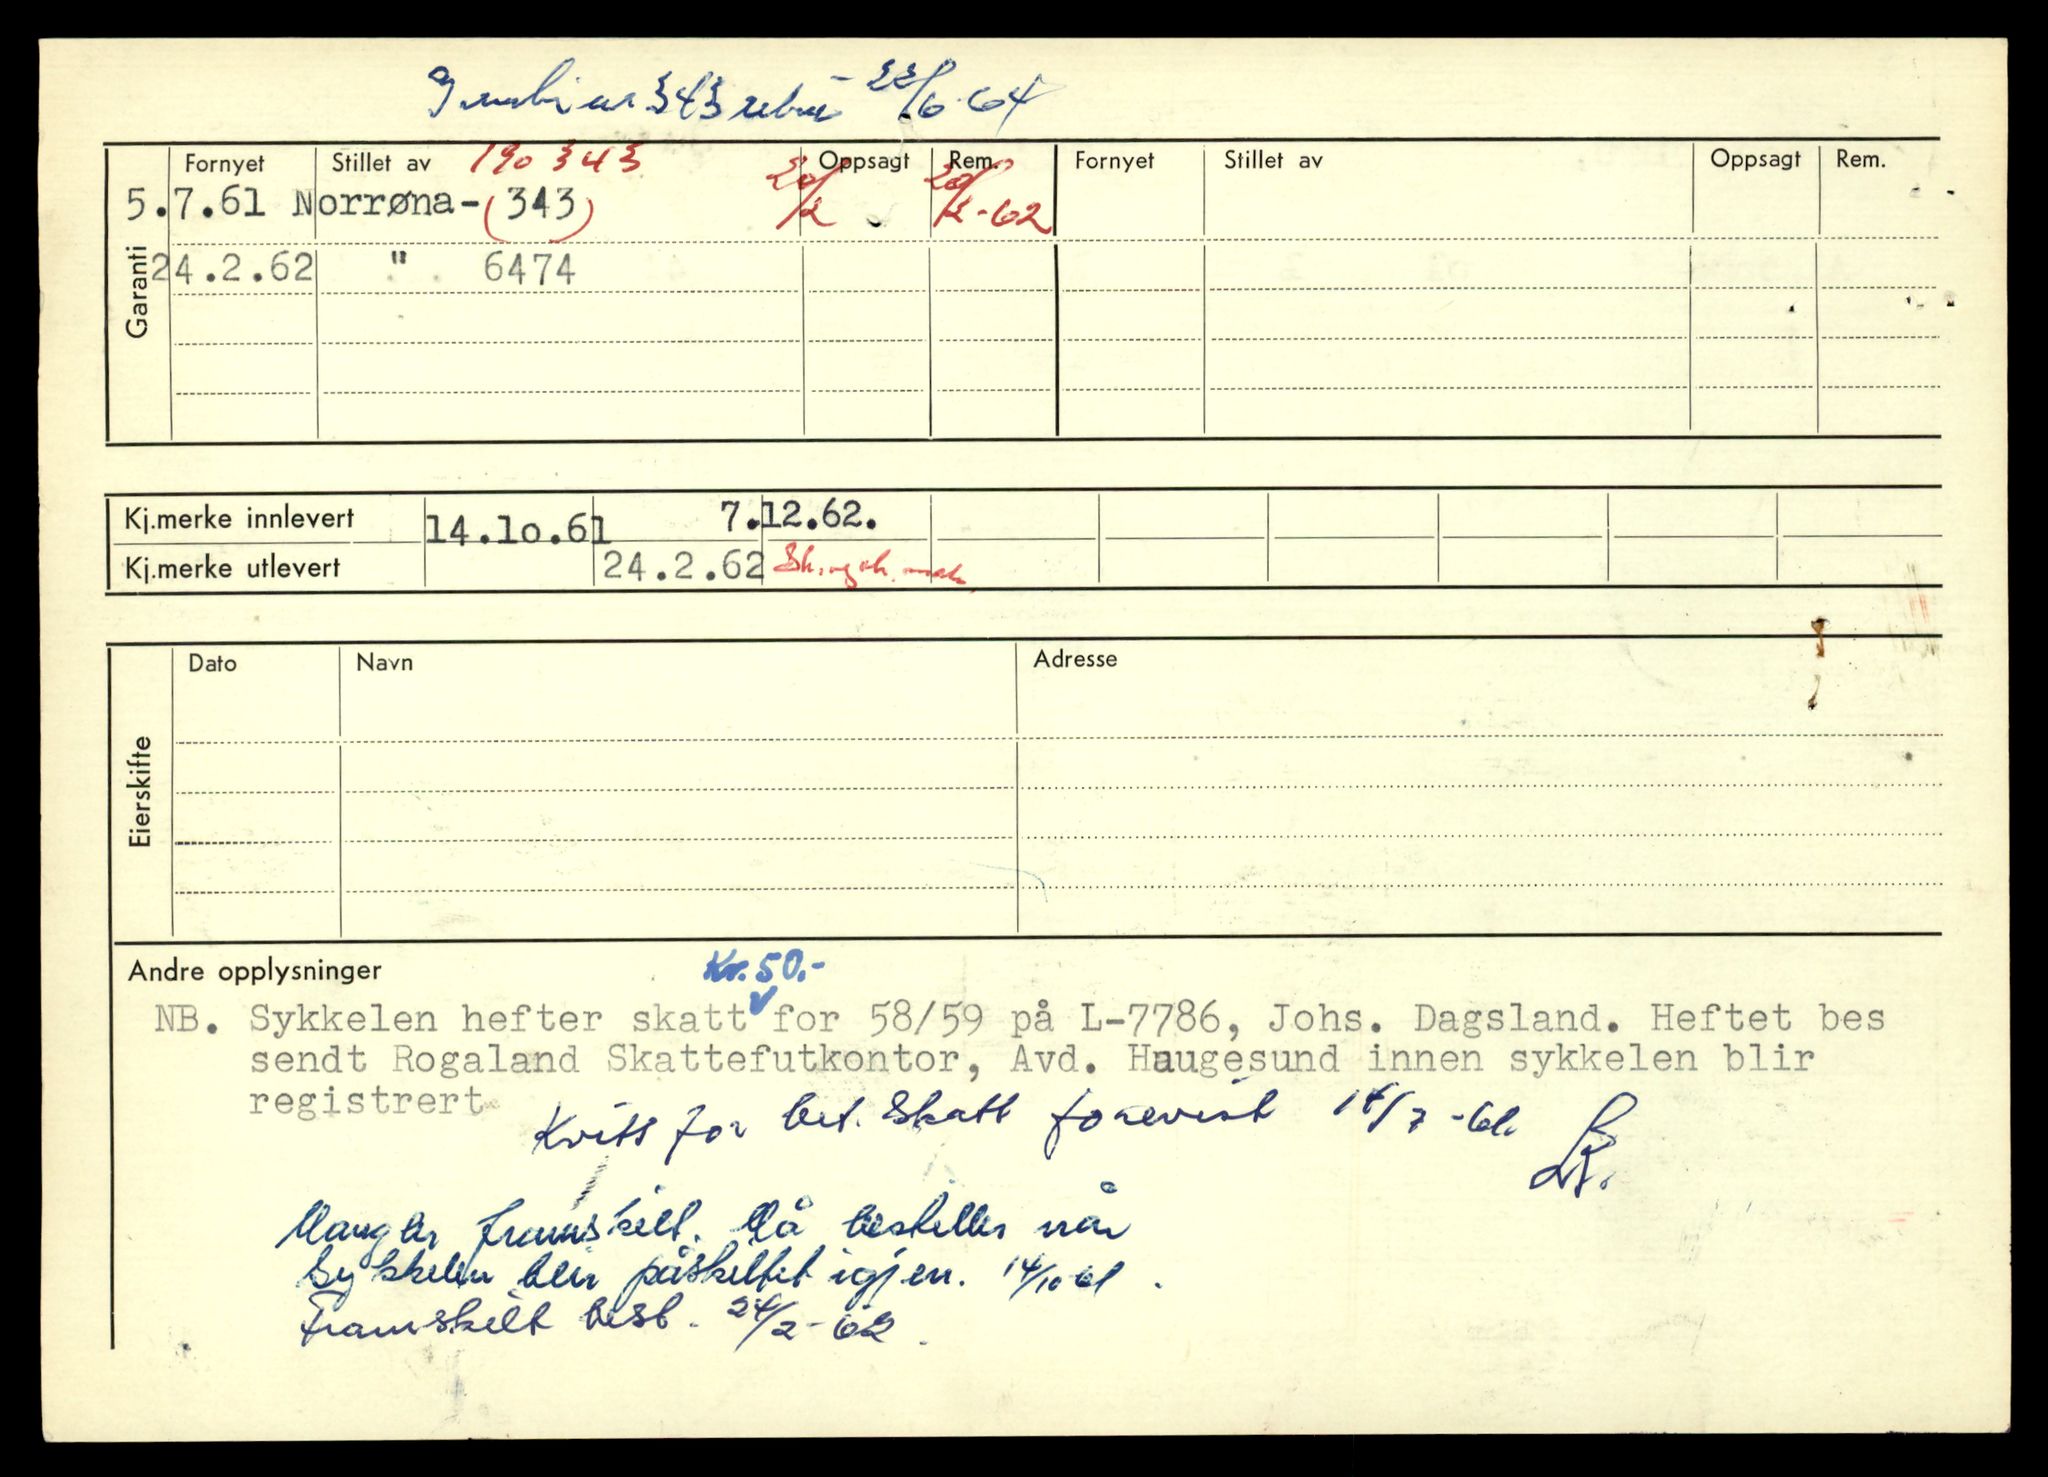 343 22/6-64
Fornyet Stillet av 190343 Oppsagt Rem. Fornyet Stillet av Oppsagt Rem.
5.7.61 Norrøna-(343) 20/2 20/2-62
24.2.62 " 6474
Garanti
Kj.merke innlevert 14.10.61 7.12.62.
Kj.merke utlevert 24.2.62
Dato Navn Adresse
Eierskifte
Andre opplysninger Kr. 50.-
NB. Sykkelen hefter skatt for 58/59 på L-7786, Johs. Dagsland. Heftet bes
sendt Rogaland Skattefutkontor, Avd. Haugesund innen sykkelen blir
registrert
Kvitt for bet. skatt forevist 14/7-61.
Mangler framskilt. Må bestilles når
sykkelen blir påskiltet igjen. 14/10-61.
Framskilt best. 24/2-62.